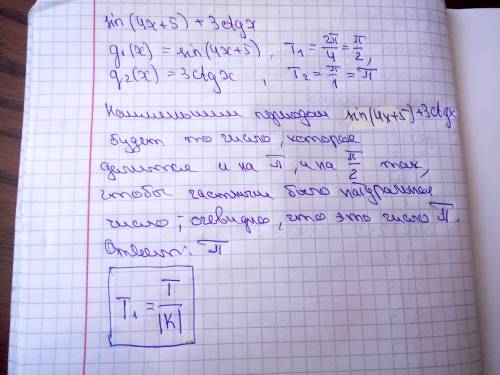 sin(4x+5) + 3ctgx
g₁(x) = sin(4x+5), T₁ = 2π/4 = π/2,
g₂(x) = 3ctgx, T₂ = π/1 = π
Наименьшим периодом sin(4x+5)+3ctgx
будет то число, которое
делится и на π, и на π/2 так,
чтобы частным было натуральное
число, очевидно, что это число π.
Ответ: π
T₁ = T/|K|